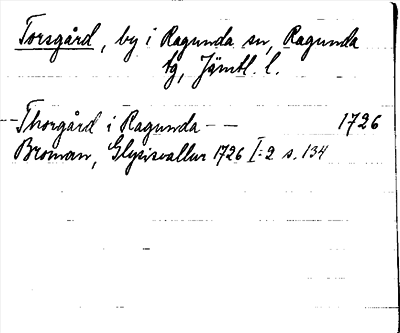 Torsgård, by i Ragunda sn, Ragunda
tg, Jämtl. l.
Thorgård i Ragunda — — 1726
Broman, Glysisvallur 1726 I:2 s. 134